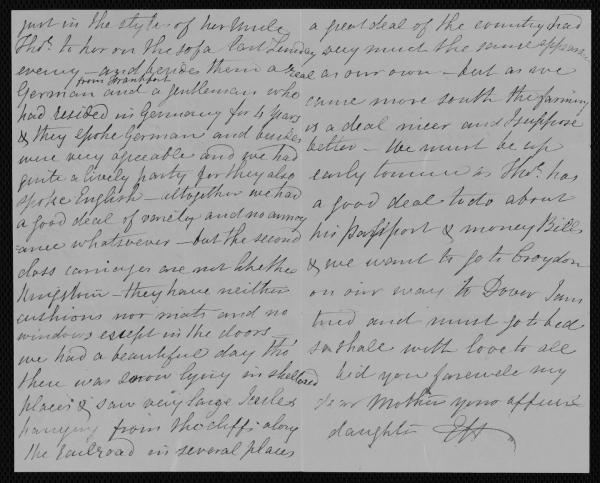 just in the style of her Uncle
Thos. to her on the sofa last Sunday
eveng – and besides them a real
from Frankfort
German and a gentleman who
had resided in Germany for 4 years
& they spoke German and besides
were very agreeable and we had
quite a lively party for they also
spoke English – altogether we had
a good deal of variety and no annoy
=ance whatsoever – but the second
class carriages are not like the
Kingstown – they have neither
cushions nor mats and no
windows except in the doors –
we had a beautiful day tho'
there was snow lying in sheltered
places & saw very large Icicles
hanging from the cliffs along
the railroad in several places
a great deal of the country had
very much the same appearance
as our own – but as we
came more south the farming
is a deal nicer and I suppose
better – We must be up
early tomorrow as Thos. has
a good deal to do about
his Passport & money Bills
& we want to go to Croydon
on our way to Dover I am
tired and must go to bed
so shall with love to all
bid you farewell my
dear Mother your affecte
daughter